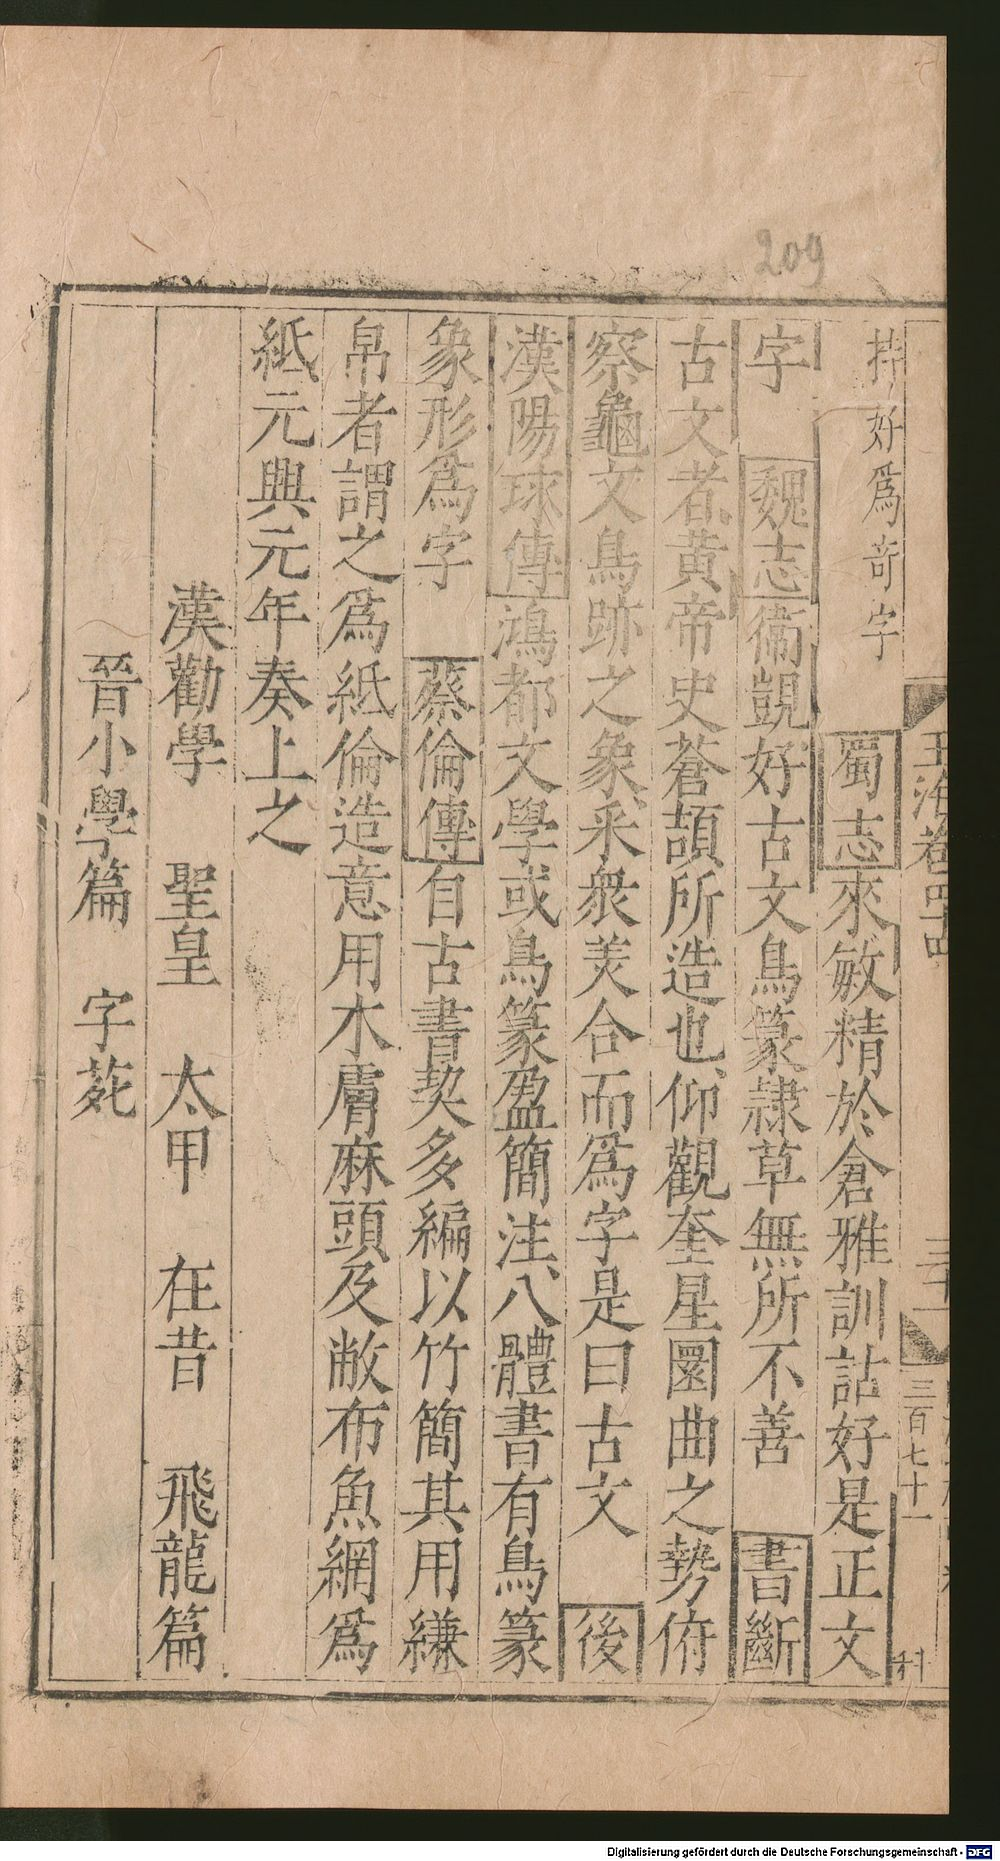 209
好爲奇字　蜀志來敏精於倉雅訓詁好是正文
字　魏志衞覬好古文鳥篆隷草無所不善　書斷
古文者黃帝史蒼頡所造也仰觀奎星圜曲之勢俯
察龜文鳥跡之象采衆羙合而爲字是曰古文　後
漢陽球傳鴻都文學或鳥篆盈簡注八體書有鳥篆
象形爲字　蔡倫傳自古書契多編以竹簡其用縑
帛者謂之爲紙倫造意用木膚麻頭及敝布魚網爲
紙元興元年奏上之
漢勸學　聖皇　太甲　在昔　飛龍篇
晉小學篇　字苑
玉海卷四十四
三十一
三百七十一
Digitalisierung gefördert durch die Deutsche Forschungsgemeinschaft - DFG